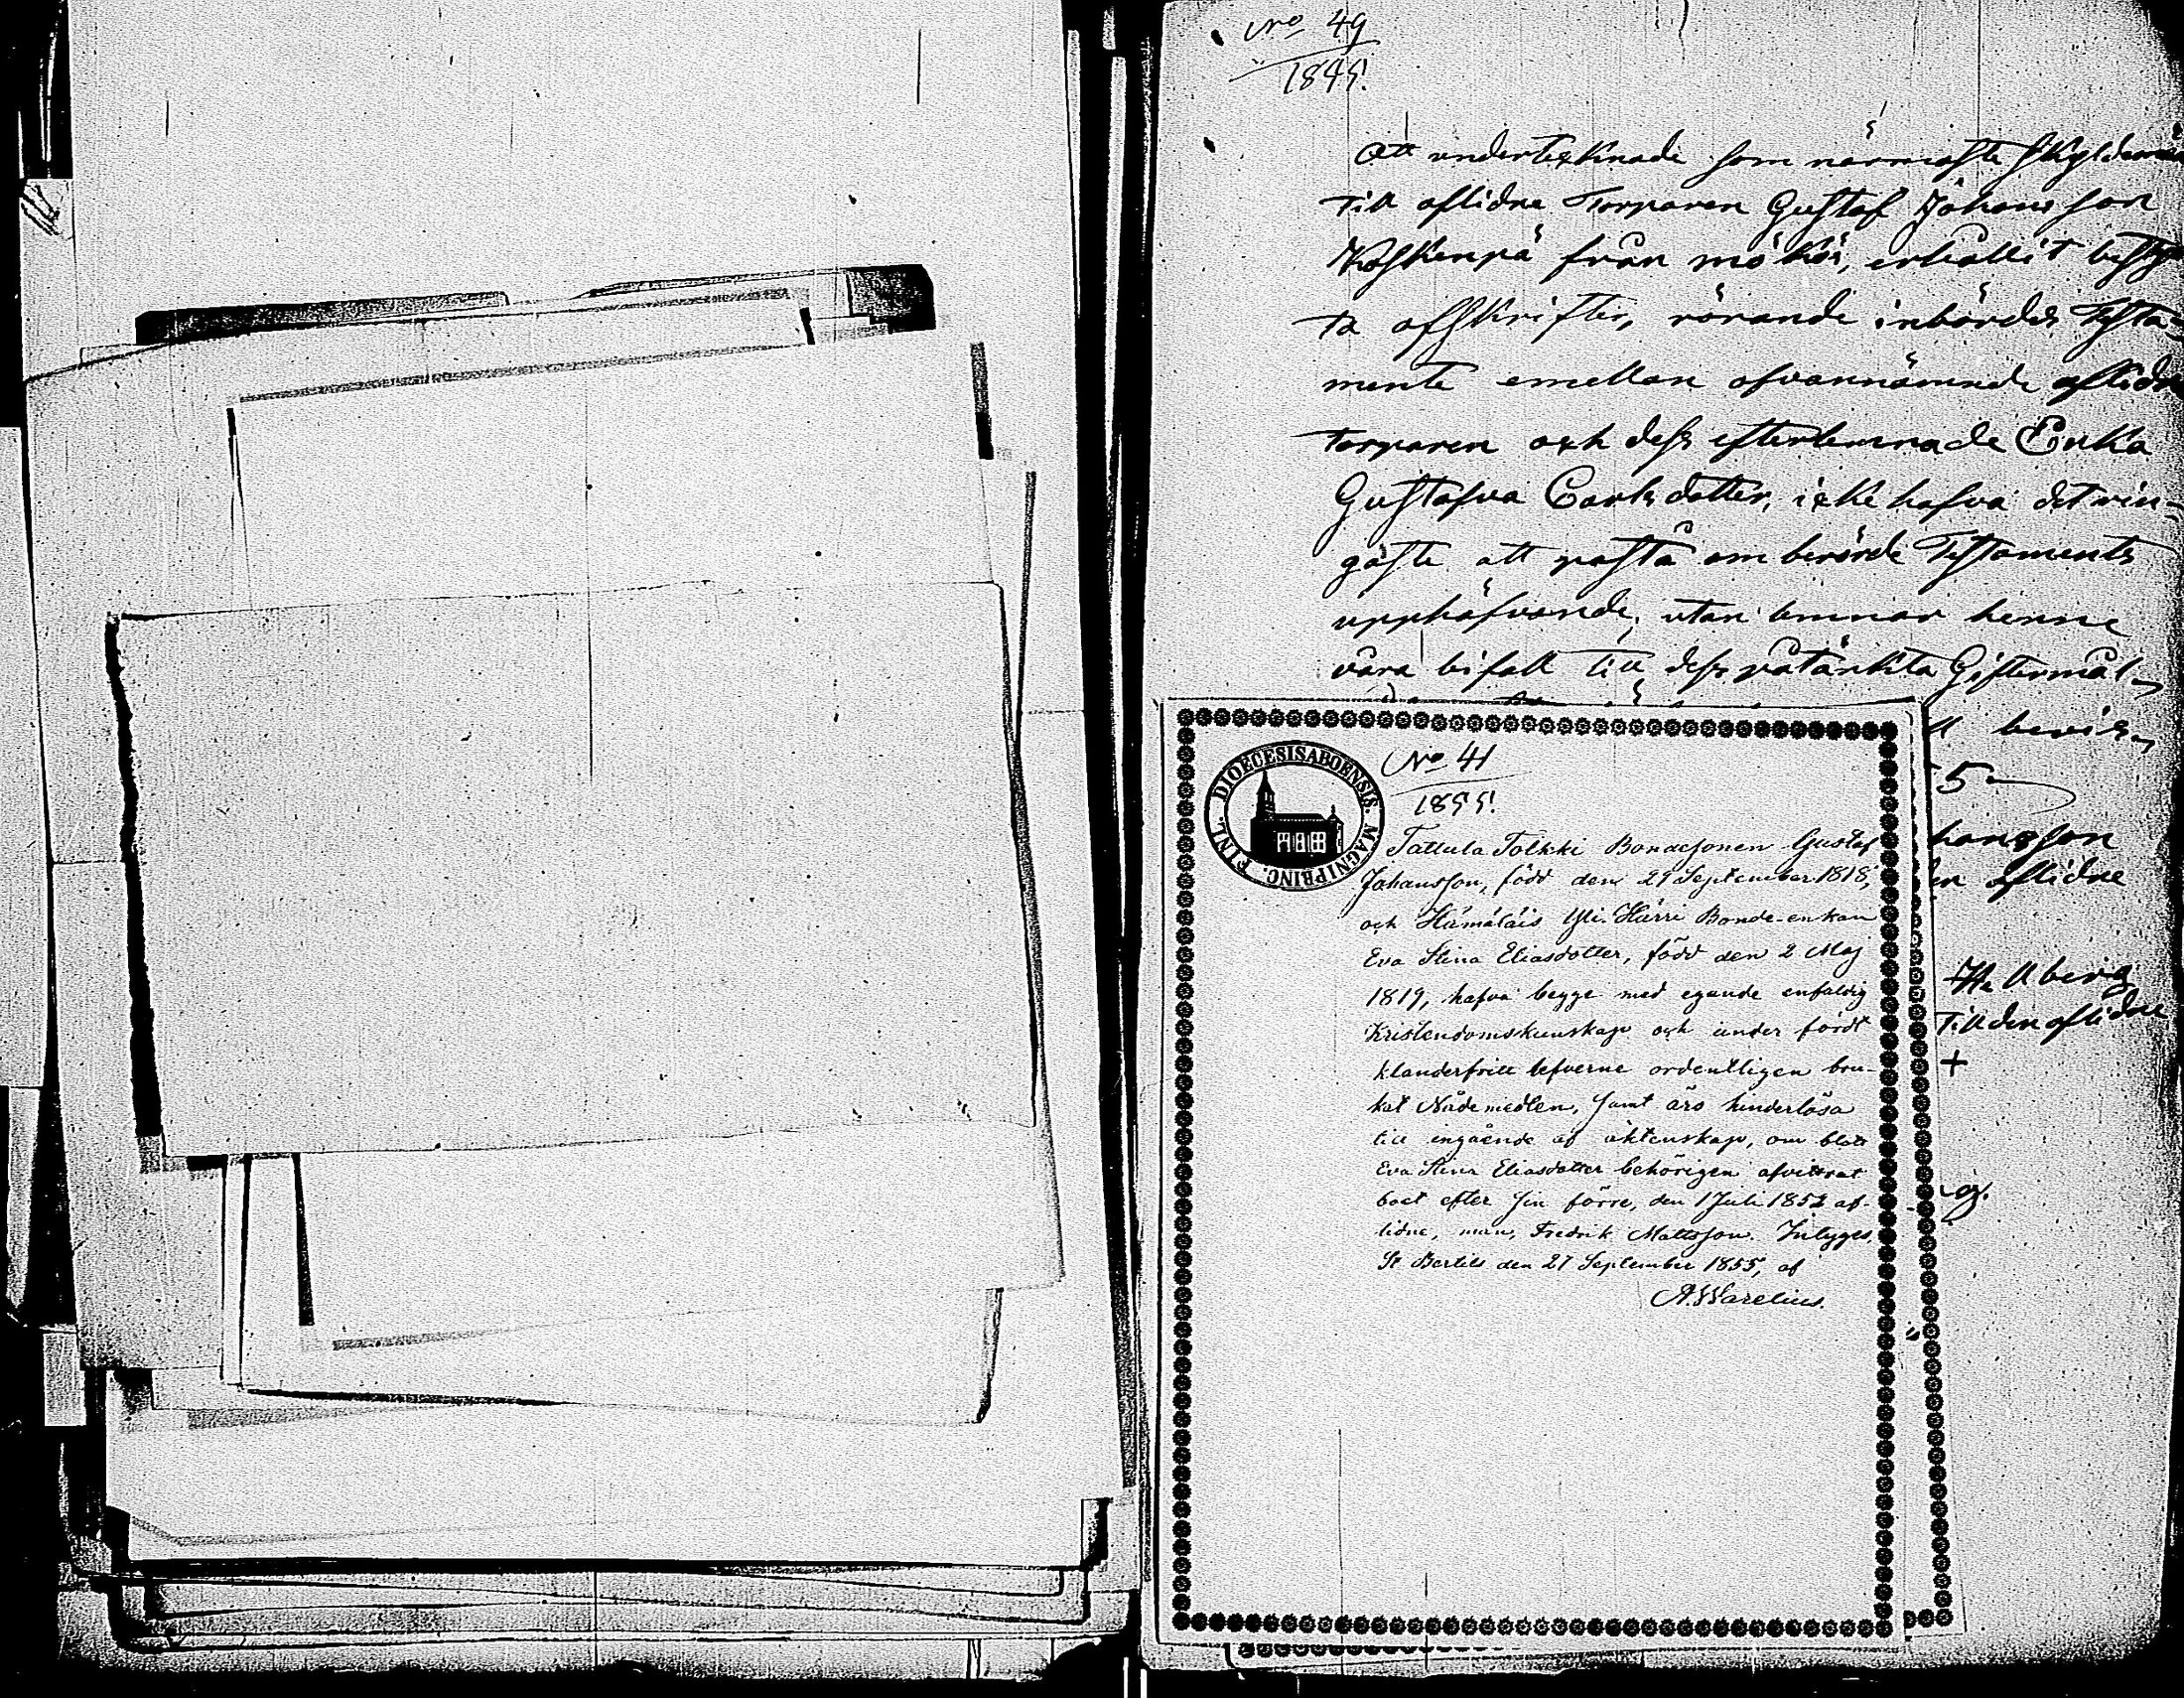 No 49
1845!
Att undertecknade som närmaste skyldemän
till aflidne Torparen Gustaf Johansson
Koskenpä från mökö, erhållit bestyr
ta afskrifter, rörande inbördes Testa=
mente emellan ofvannämnde aflidne
torparen och dess efterlemnade Enka
Gustafva Carlsdotter, icke hafva det rin=
gaste att påstå om berörde Testaments
upphäfvande, utan lemnar henne
våra bifall till dess påtänkta Giftermål,
bevis,
5
hansson
aflidne
Hellberg
till den aflidne
+
No 41
1855!
DIOECESIS ABOENSIS. MAGNI PRINC. FINL.
Tattula Tolkki Bondesonen Gustaf
Johansson, född den 29 September 1818,
och Hämäläis Yli-Härri Bonde-enkan
Eva Stina Eliasdotter, född den 2 Maj
1819, hafva begge med egande enfaldig
Kristendomskunskap och under fördt
klanderfritt lefverne ordentligen bru-
kat Nådemedlen, samt äro hinderlösa
till ingående af äktenskap, om blott
Eva Stina Eliasdotter behörigen afvittrat
boet efter sin förre, den 1 Juli 1852 af-
lidne, man, Fredrik Mattsson. Intygas,
St Bertils den 27 September 1855, af
A. Warelius.